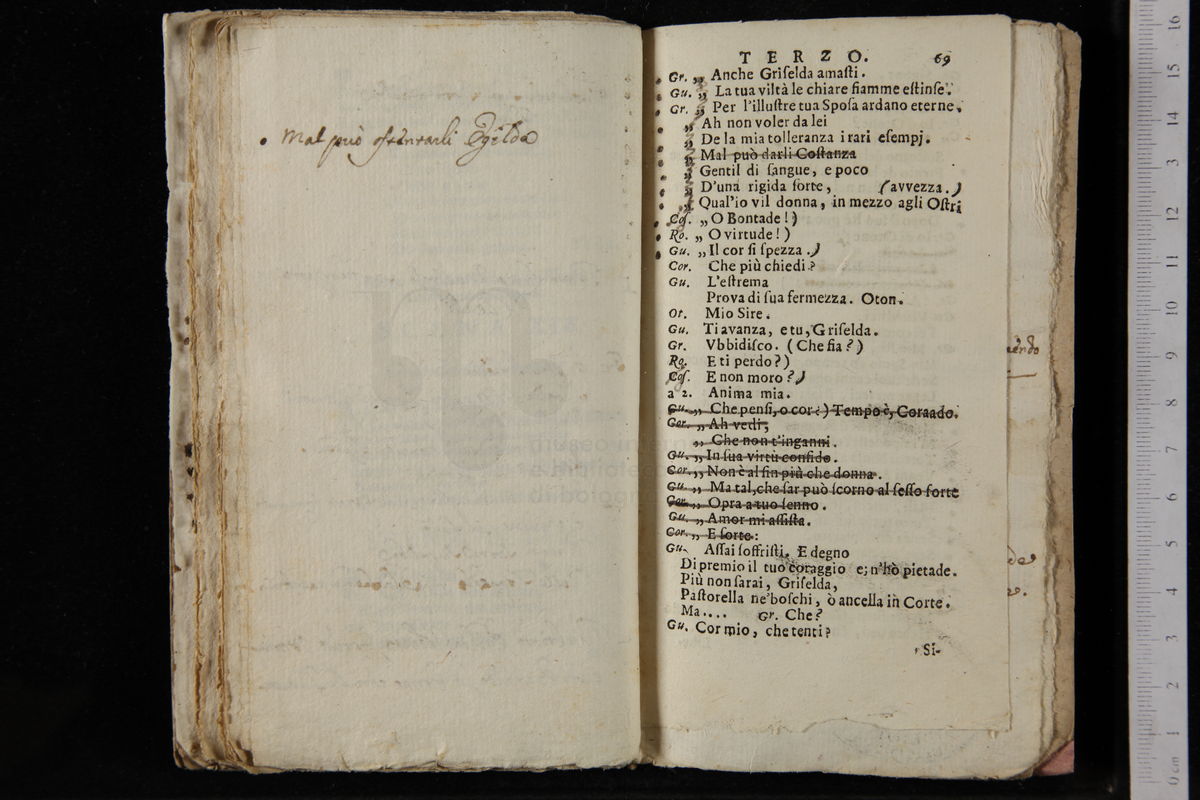 Mal può ostentarli Egilda
TERZO. 69
Gr. „ Anche Griſelda amaſti.
Gu. „ La tua viltà le chiare fiamme eſtinſe.
Gr. „ Per l'illuſtre tua Spoſa ardano eterne.
„ Ah non voler da lei
„ De la mia tolleranza i rari eſempj.
„ Mal può darli Coſtanza
„ Gentil di ſangue, e poco
„ D'una rigida ſorte, (avvezza.)
„ Qual'io vil donna, in mezzo agli Oſtri
Coſ. „ O Bontade!)
Ro. „ O virtude!)
Gu. „ Il cor ſi ſpezza.)
Cor. Che più chiedi?
Gu. L'eſtrema
Prova di ſua fermezza. Oton.
Ot. Mio Sire.
Gu. Ti avanza, e tu, Griſelda.
Gr. Vbbidiſco. (Che fia?)
Ro. E ti perdo?)
Coſ. E non moro?)
a 2. Anima mia.
Gu. „ Che penſi, o cor?) Tempo è, Corrado.
Cor. „ Ah vedi,
„ Che non t'inganni.
Gu. „ In ſua virtù confido.
Cor. „ Non è al fin più che donna.
Gu. „ Ma tal, che far può ſcorno al ſeſſo forte
Cor. „ Opra a tuo ſenno.
Gu. „ Amor mi aſſiſta.
Cor. „ E ſorte:
Gu. Aſſai ſoffriſti. E degno
Di premio il tuo coraggio e; n'hò pietade.
Più non ſarai, Griſelda,
Paſtorella ne'boſchi, ò ancella in Corte.
Ma.... Gr. Che?
Gu. Cor mio, che tenti?
Si-